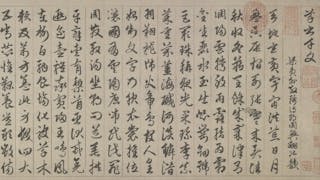 草書千文
梁員外散騎侍郎周興嗣次韻
天地玄黃宇宙洪荒日月
盈昃辰宿列張寒來暑往
秋收冬藏閏餘成歲律呂
調陽雲騰致雨露結為霜
金生麗水玉出崑岡劍號
巨闕珠稱夜光菓珍李柰
菜重芥薑海鹹河淡鱗潛
羽翔龍師火帝鳥官人皇
始制文字乃服衣裳推位
讓國有虞陶唐弔民伐罪
周發殷湯坐朝問道垂拱
平章愛育黎首臣伏戎羌
遐邇壹體率賓歸王鳴鳳
在樹白駒食場化被草木
賴及萬方蓋此身髮四大
五常恭惟鞠養豈敢毀傷